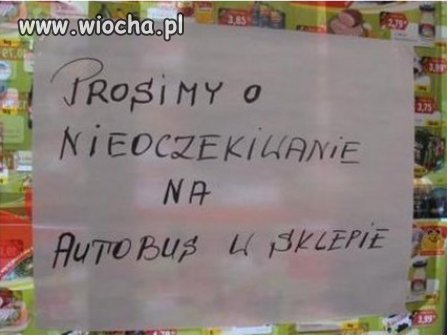 www.wiocha.pl
PROSIMY O
NIEOCZEKIWANIE
NA
AUTOBUS W SKLEPIE
3,85
2,78
3,99
3,75
3,99